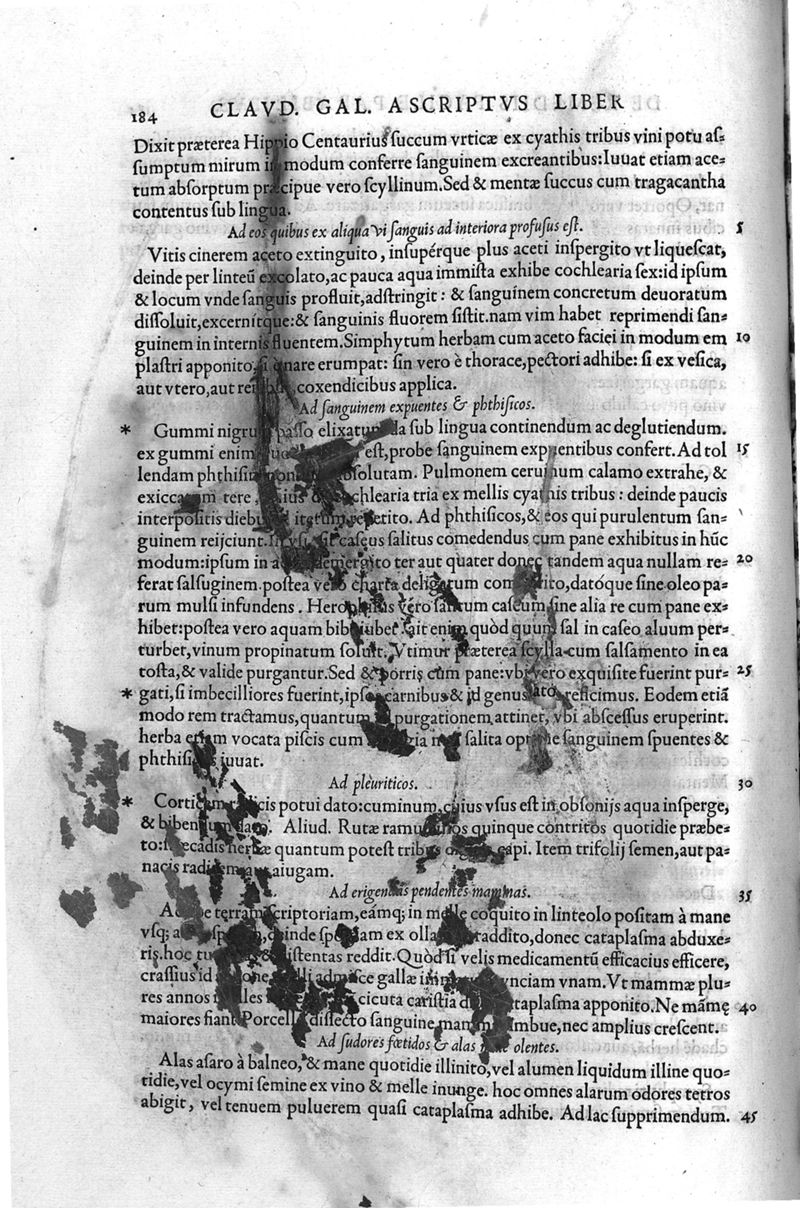 184 CLAVD. GAL. ASCRIPTVS LIBER
Dixit præterea Hippio Centaurius ſuccum vrticæ ex cyathis tribus vini potu aſ=
ſumptum mirum in modum conferre ſanguinem excreantibus: Iuuat etiam ace=
tum abſorptum præcipue vero ſcyllinum. Sed & mentæ ſuccus cum tragacantha
contentus ſub lingua.
Ad eos quibus ex aliqua vi ſanguis ad interiora profuſus eſt. 5
Vitis cinerem aceto extinguito, inſupérque plus aceti inſpergito vt liqueſcat,
deinde per linteũ excolato, ac pauca aqua immiſta exhibe cochlearia ſex: id ipſum
& locum vnde ſanguis profluit, adſtringit: & ſanguinem concretum deuoratum
diſſoluit, excernítque: & ſanguinis fluorem ſiſtit. nam vim habet reprimendi ſan=
guinem in internis fluentem. Simphytum herbam cum aceto faciei in modum em 10
plaſtri apponito, ſi nare erumpat: ſin vero è thorace, pectori adhibe: ſi ex veſica,
aut vtero, aut coxendicibus applica.
Ad ſanguinem expuentes & phthiſicos.
* Gummi nigrum paſſo elixatum da ſub lingua continendum ac deglutiendum.
ex gummi enim eſt, probe ſanguinem expuentibus confert. Ad tol 15
lendam phthiſim abſolutam. Pulmonem ceruinum calamo extrahe, &
exiccatum tere, cochlearia tria ex mellis cyathis tribus: deinde paucis
interpoſitis diebus iterum repetito. Ad phthiſicos, & eos qui purulentum ſan=
guinem reijciunt. ſit caſeus ſalitus comedendus cum pane exhibitus in hũc
modum: ipſum in demergito ter aut quater donec tandem aqua nullam re= 20
ferat ſalſuginem. poſtea vero charta deligatum dató que ſine oleo pa=
rum mulſi infundens. Herophilus vero ſalitum caſeum ſine alia re cum pane ex=
hibet: poſtea vero aquam iubet. ait enim quòd quum ſal in caſeo aluum per=
turbet, vinum propinatum ſoluit. Vtimur præterea ſcylla cum ſalſamento in ea
toſta, & valide purgantur. Sed & porris cum pane: vbi vero exquiſite fuerint pur= 25
* gati, ſi imbecilliores fuerint, ipſos carnibus & id genus reficimus. Eodem etiã
modo rem tractamus, quantum purgationem attinet, vbi abſceſſus eruperint.
herba etiam vocata piſcis cum ſalita optime ſanguinem ſpuentes &
phthiſicos iuuat.
Ad pleuriticos. 30
* Corticum radicis potui dato: cuminum, cuius vſus eſt in obſonijs aqua inſperge,
& bibendum dato. Aliud. Rutæ ramulos quinque contritos quotidie præbe=
to: herbæ quantum poteſt tribus digitis capi. Item trifolij ſemen, aut pa=
nacis radicem aiugam.
Ad erigendas pendentes mammas. 35
terram ſcriptoriam, eámq; in melle coquito in linteolo poſitam à mane
vſq; deinde ex olla raddito, donec cataplaſma abduxe=
ris. hoc reddit. Quòd ſi velis medicamentũ efficacius efficere,
craſſius id admiſce gallæ vnciam vnam. Vt mammæ plu=
res annos cicuta cataplaſma apponito. Ne mãmę 40
maiores fiant. Porcello diſſecto ſanguine imbue, nec amplius creſcent.
Ad ſudores fœtidos & alas male olentes.
Alas aſaro à balneo, & mane quotidie illinito, vel alumen liquidum illine quo=
tidie, vel ocymi ſemine ex vino & melle inunge. hoc omnes alarum odores tetros
abigit, vel tenuem puluerem quaſi cataplaſma adhibe. Ad lac ſupprimendum. 45